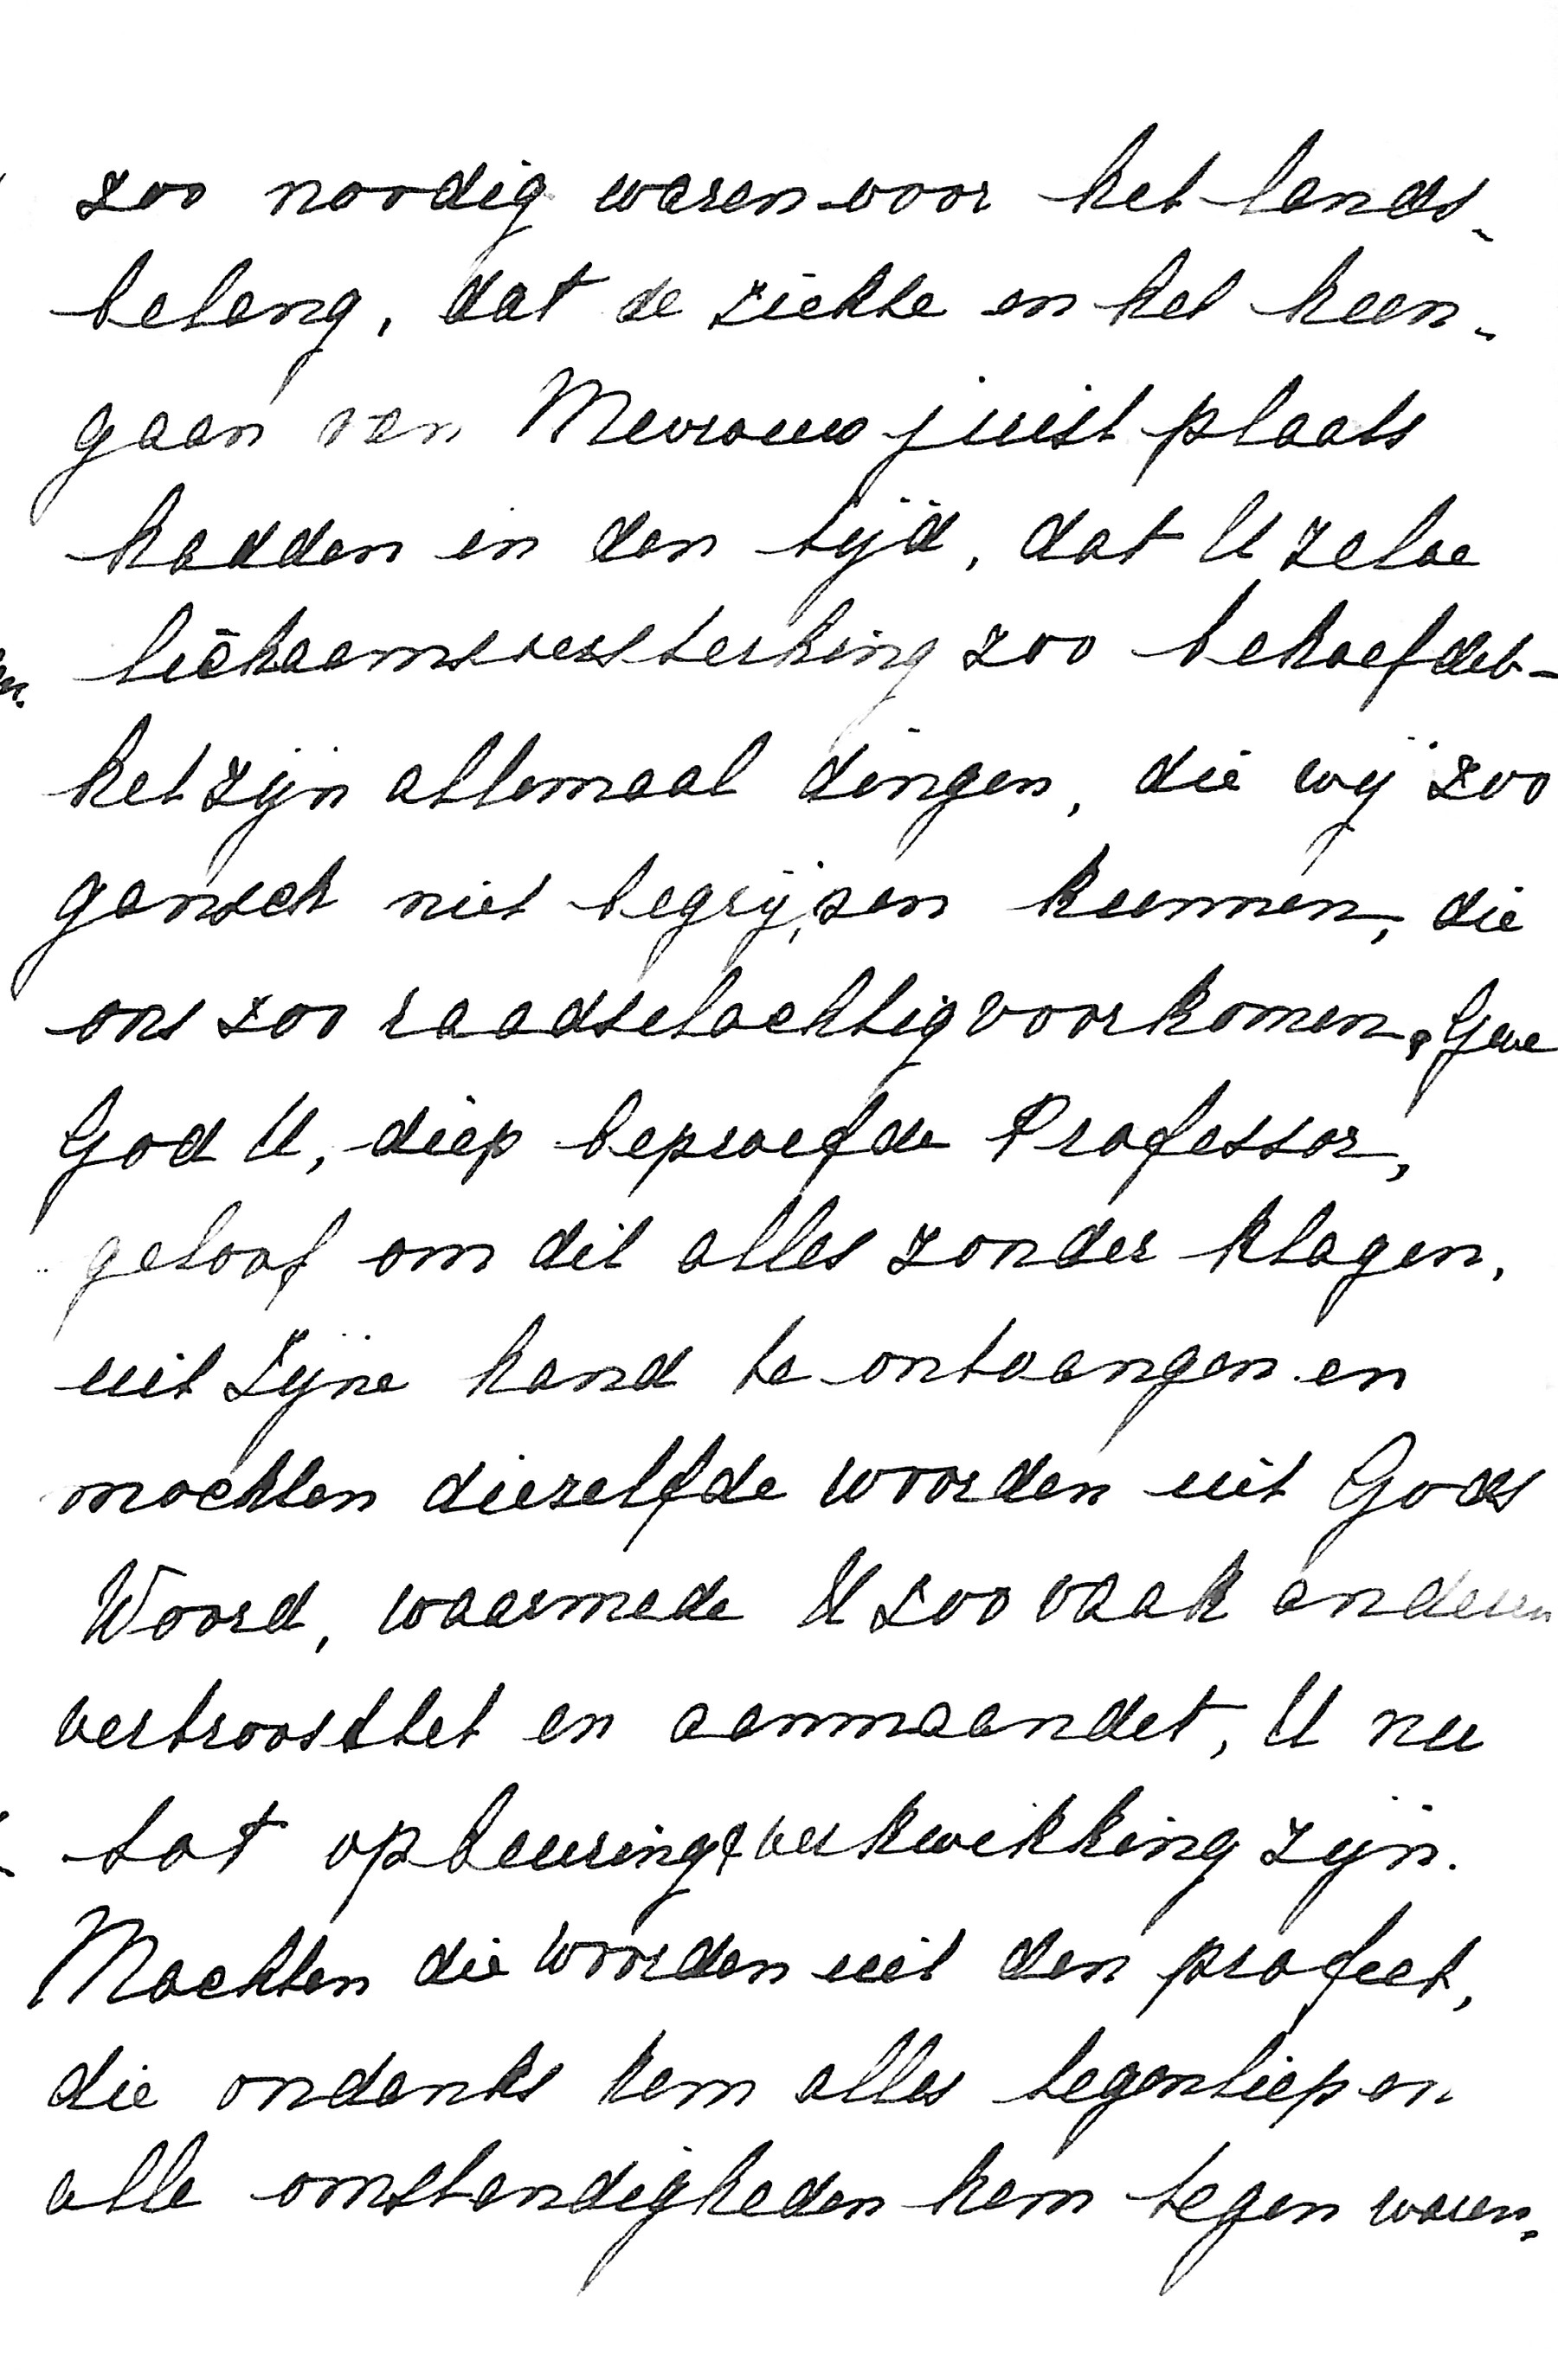 zoo noodig waren voor het lands-
belang, dat de ziekte en het heen-
gaan van Mevrouw juist plaats
hadden in den tijd, dat U zelve
lichaamsversterking zoo behoefdet-
het zijn allemaal dingen, die wij zoo
gansch niet begrijpen kunnen, die
ons zoo raadselachtig voorkomen. Geve
God U, diep beproefde Professor,
geloof om dit alles zonder klagen,
uit Zijne hand te ontvangen en
mochten diezelfde woorden uit Gods
Woord, waarmede U zoo vaak anderen
vertroosttet en aanmaandet, U nu
tot opbeuring & verkwikking zijn.
Mochten die woorden uit den profeet,
die ondanks hem alles tegenliep en
alle omstandigheden hem tegen waren.